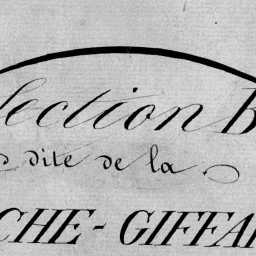 Section B
dite de la
CHE-GIFFA